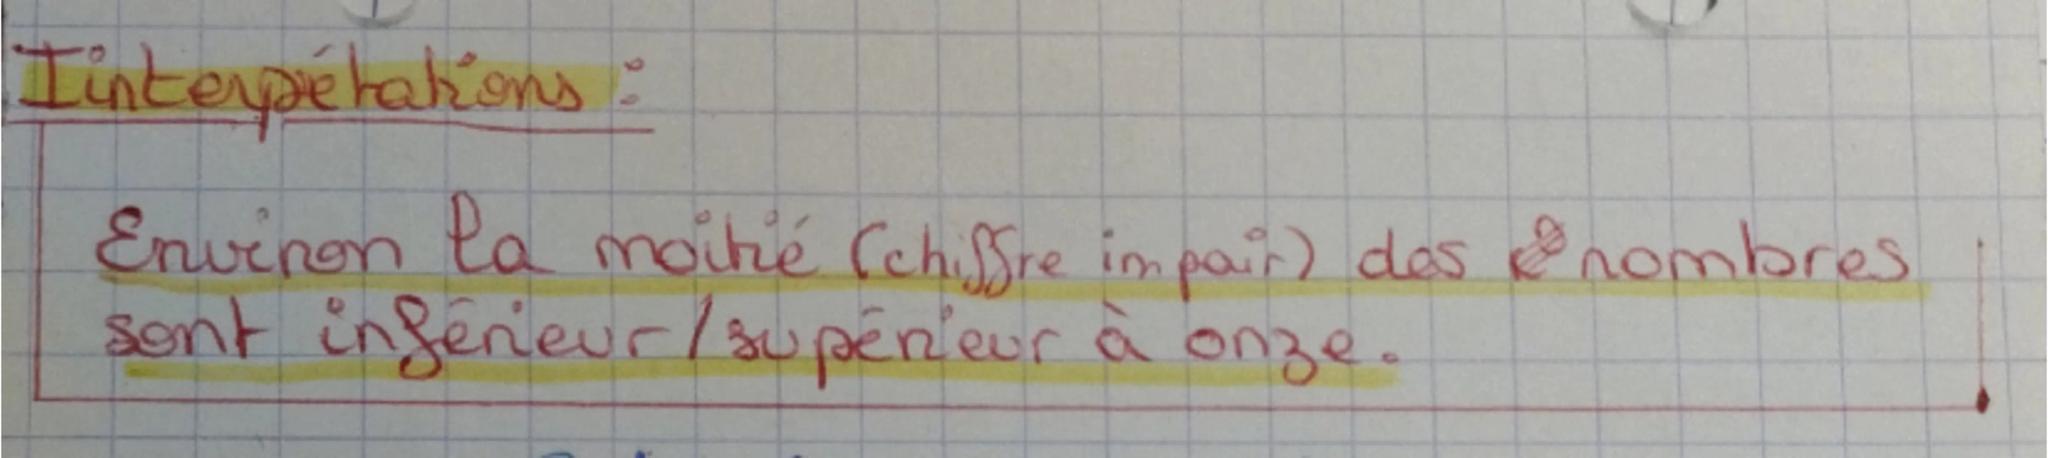 Iinterpétations :
Environ la moitié (chiffre impair) des nombres
sont inférieur/supérieur à onze.